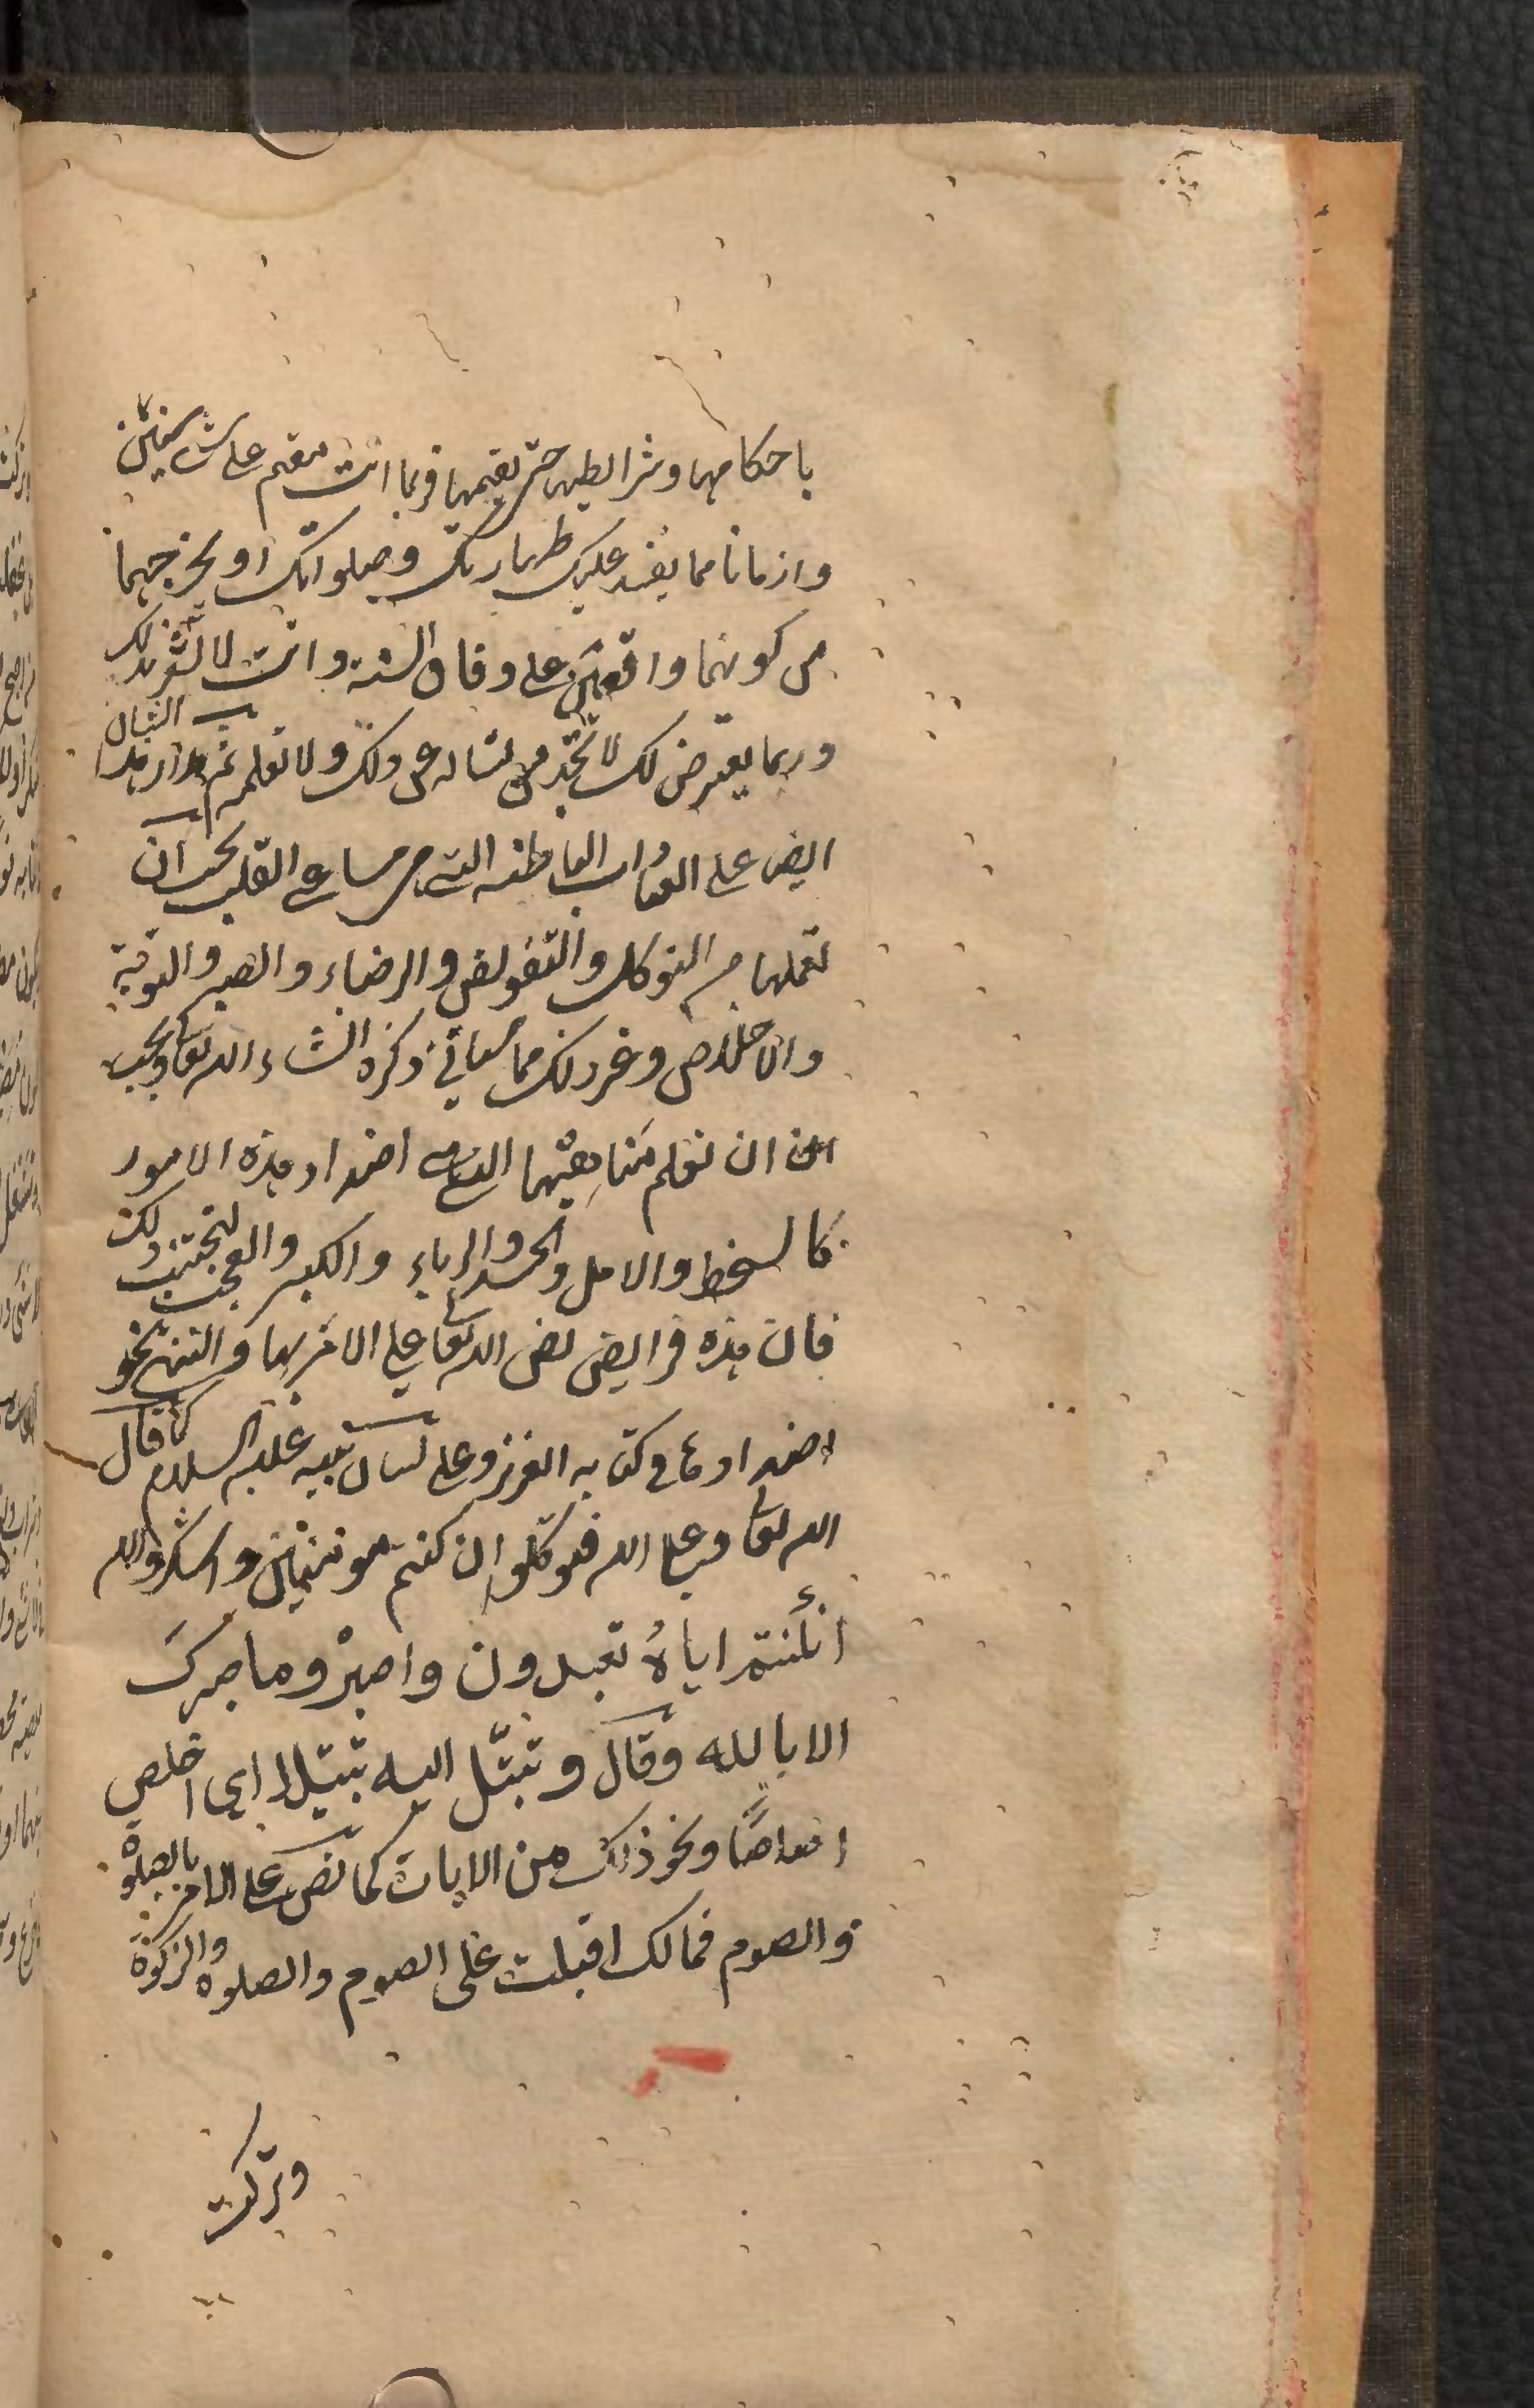 باحكامها وشرائطها حتى تقيمها فربما انت مقيم على شئ سنين
وازمانا مما يفسد عليك طهارتك وصلواتك او يخرجهما
من كونهما واقعتين على وفاق السنة وانت لا تشعر بذلك
وربما يعترض لك لا تجد من تساله عن ذلك ولا تعلمه ثم مدار هذا الشان
ايض على العبادات الباطنه التى هى مساعى القلب يجب ان
تعملها من التوكل والتفويض والرضاء والصبر والتوبة
والاخلاص وغير ذلك مما سياتى ذكره انشاء الله تعا ويجب
ان تعلم مناهيها التى هى اضداد هذه الامور
كالسخط والامل والحسد والرياء والكبر والعجب لتجتنب ذلك
فان هذه فرايض نص الله تعا على الامر بها والنهى نحو
اضدادها فى كتابه العزيز وعلى لسان نبيه عليه السلام كما قال
الله تعا وعلى الله فتوكلوا ان كنتم مومنين واشكروا لله
ان كنتم اياهُ تعبدون واصبرْ وما صبركَ
الا بالله وقال وتبتّل اليه تبتيلا اى اخلص
اخلاصًا ونحو ذلك من الايات كما نص على الامر بالصلوة
والصوم فمالك اقبلت على الصوم والصلوه والزكوة
وتركت